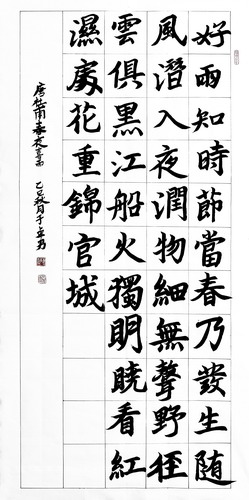 好雨知時節當春乃發生随
風潛入夜潤物細無聲野徑
雲俱黑江船火獨明曉看紅
濕處花重錦官城
唐杜甫春夜喜雨 秋月